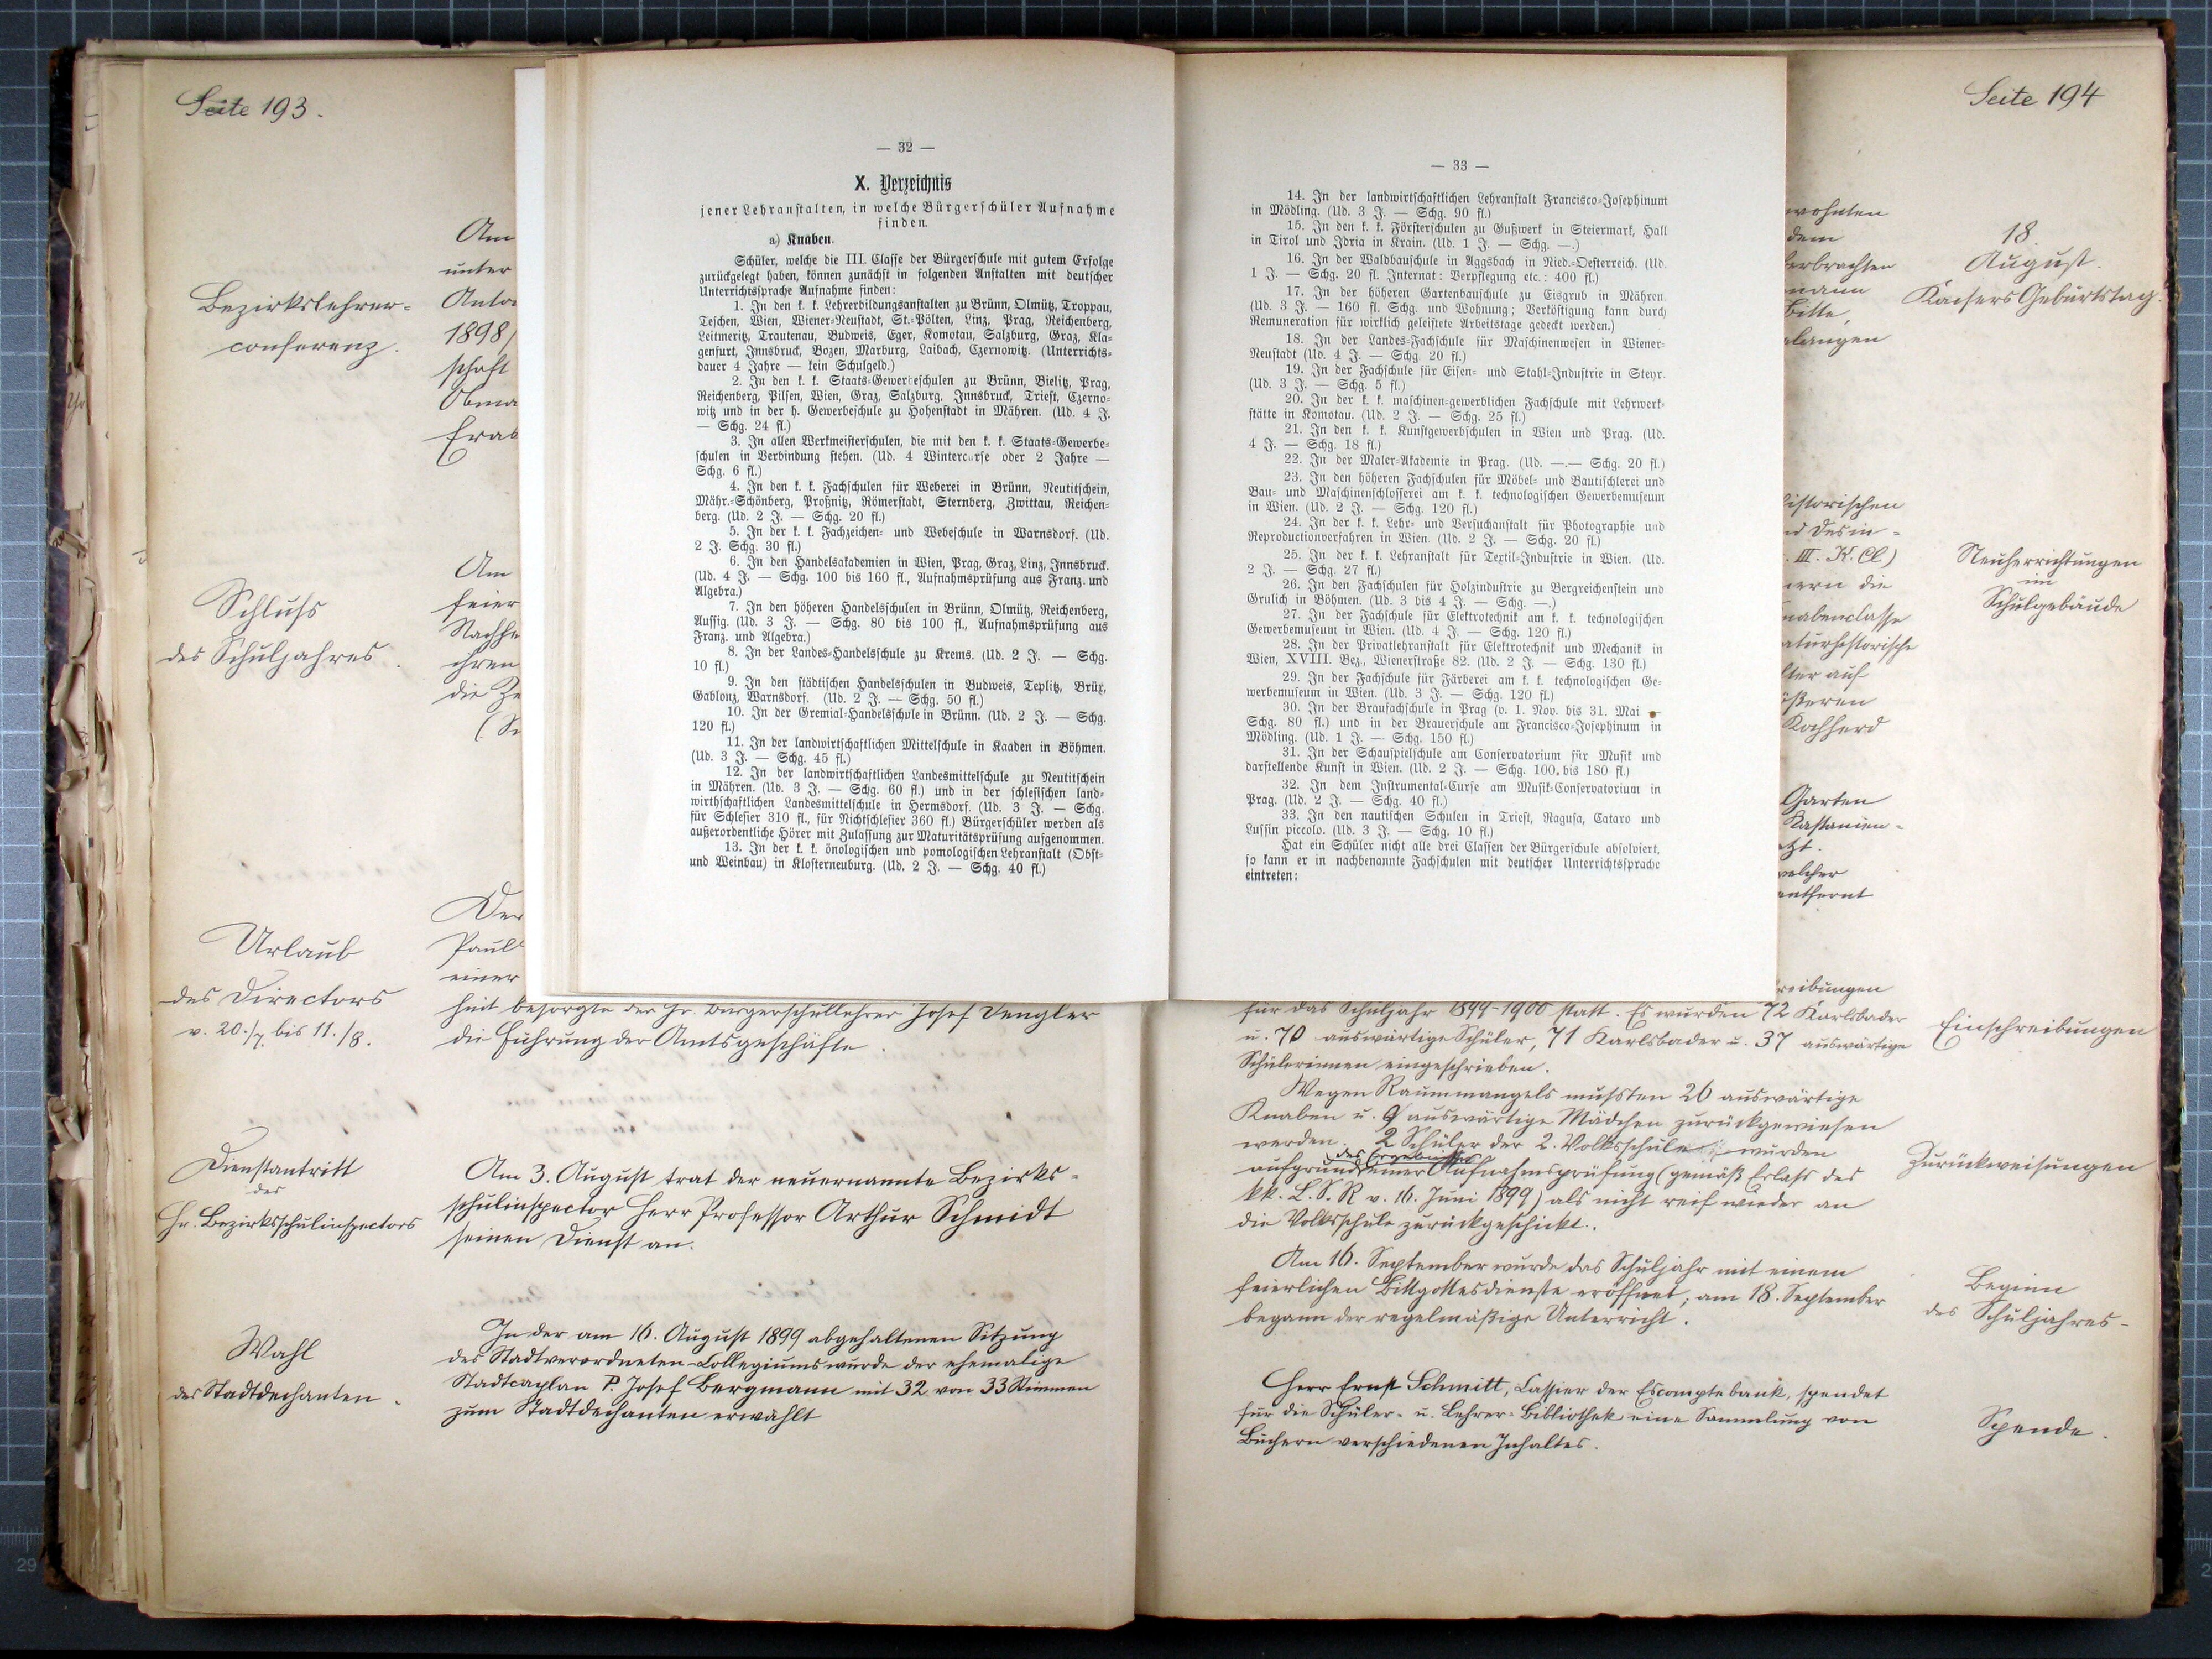 Seite 193.
Bezirkslehrer-
conferenz.
Am
unter
1898
schaft
Schluss
des Schuljahres.
Am
feier
ihren
die
Urlaub
des Directors
v. 20./7. bis 11./8.
Der
Paul
einer
heit besorgte der Hr. Bürgerschullehrer Josef Dengler
die Führung der Amtsgeschäfte.
Dienstantritt
des
Hr. Bezirksschulinspectors
Am 3. August trat der neuernannte Bezirks-
schulinspector Herr Professor Arthur Schmidt
seinen Dienst an.
Wahl
des Stadtdechanten.
In der am 16. August 1899 abgehaltenen Sitzung
des Stadtverordneten-Collegiums wurde der ehemalige
Stadtcaplan P. Josef Bergmann mit 32 von 33 Stimmen
zum Stadtdechanten erwählt
— 32 —
X. Verzeichnis
jener Lehranstalten, in welche Bürgerschüler Aufnahme
finden.
a) Knaben.
Schüler, welche die III. Classe der Bürgerschule mit gutem Erfolge
zurückgelegt haben, können zunächst in folgenden Anstalten mit deutscher
Unterrichtssprache Aufnahme finden:
1. In den k. k. Lehrerbildungsanstalten zu Brünn, Olmütz, Troppau,
Teschen, Wien, Wiener-Neustadt, St.-Pölten, Linz, Prag, Reichenberg,
Leitmeritz, Trautenau, Budweis, Eger, Komotau, Salzburg, Graz, Kla-
genfurt, Innsbruck, Bozen, Marburg, Laibach, Czernowitz. (Unterrichts-
dauer 4 Jahre — kein Schulgeld.)
2. In den k. k. Staats-Gewerbeschulen zu Brünn, Bielitz, Prag,
Reichenberg, Pilsen, Wien, Graz, Salzburg, Innsbruck, Triest, Czerno-
witz und in der h. Gewerbeschule zu Hohenstadt in Mähren. (Ud. 4 J.
— Schg. 24 fl.)
3. In allen Werkmeisterschulen, die mit den k. k. Staats-Gewerbe-
schulen in Verbindung stehen. (Ud. 4 Wintercurse oder 2 Jahre —
Schg. 6 fl.)
4. In den k. k. Fachschulen für Weberei in Brünn, Neutitschein,
Mähr.-Schönberg, Proßnitz, Römerstadt, Sternberg, Zwittau, Reichen-
berg. (Ud. 2 J. — Schg. 20 fl.)
5. In der k. k. Fachzeichen- und Webeschule in Warnsdorf. (Ud.
2 J. Schg. 30 fl.)
6. In den Handelsakademien in Wien, Prag, Graz, Linz, Innsbruck.
(Ud. 4 J. — Schg. 100 bis 160 fl., Aufnahmsprüfung aus Franz. und
Algebra.)
7. In den höheren Handelsschulen in Brünn, Olmütz, Reichenberg,
Aussig. (Ud. 3 J. — Schg. 80 bis 100 fl., Aufnahmsprüfung aus
Franz. und Algebra.)
8. In der Landes-Handelsschule zu Krems. (Ud. 2 J. — Schg.
10 fl.)
9. In den städtischen Handelsschulen in Budweis, Teplitz, Brüx,
Gablonz, Warnsdorf. (Ud. 2 J. — Schg. 50 fl.)
10. In der Gremial-Handelsschule in Brünn. (Ud. 2 J. — Schg.
120 fl.)
11. In der landwirtschaftlichen Mittelschule in Kaaden in Böhmen.
(Ud. 3 J. — Schg. 45 fl.)
12. In der landwirtschaftlichen Landesmittelschule zu Neutitschein
in Mähren. (Ud. 3 J. — Schg. 60 fl.) und in der schlesischen land-
wirthschaftlichen Landesmittelschule in Hermsdorf. (Ud. 3 J. — Schg.
für Schlesier 310 fl., für Nichtschlesier 360 fl.) Bürgerschüler werden als
außerordentliche Hörer mit Zulassung zur Maturitätsprüfung aufgenommen.
13. In der k. k. önologischen und pomologischen Lehranstalt (Obst-
und Weinbau) in Klosterneuburg. (Ud. 2 J. — Schg. 40 fl.)
— 33 —
14. In der landwirtschaftlichen Lehranstalt Francisco-Josephinum
in Mödling. (Ud. 3 J. — Schg. 90 fl.)
15. In den k. k. Försterschulen zu Gußwerk in Steiermark, Hall
in Tirol und Idria in Krain. (Ud. 1 J. — Schg. —.)
16. In der Waldbauschule in Aggsbach in Nied.-Oesterreich. (Ud.
1 J. — Schg. 20 fl. Internat: Verpflegung etc.: 400 fl.)
17. In der höheren Gartenbauschule zu Eisgrub in Mähren.
(Ud. 3 J. — 160 fl. Schg. und Wohnung; Verköstigung kann durch
Remuneration für wirklich geleistete Arbeitstage gedeckt werden.)
18. In der Landes-Fachschule für Maschinenwesen in Wiener-
Neustadt (Ud. 4 J. — Schg. 20 fl.)
19. In der Fachschule für Eisen- und Stahl-Industrie in Steyr.
(Ud. 3 J. — Schg. 5 fl.)
20. In der k. k. maschinen-gewerblichen Fachschule mit Lehrwerk-
stätte in Komotau. (Ud. 2 J. — Schg. 25 fl.)
21. In den k. k. Kunstgewerbschulen in Wien und Prag. (Ud.
4 J. — Schg. 18 fl.)
22. In der Maler-Akademie in Prag. (Ud. —.— Schg. 20 fl.)
23. In den höheren Fachschulen für Möbel- und Bautischlerei und
Bau- und Maschinenschlosserei am k. k. technologischen Gewerbemuseum
in Wien. (Ud. 2 J. — Schg. 120 fl.)
24. In der k. k. Lehr- und Versuchanstalt für Photographie und
Reproductionverfahren in Wien. (Ud. 2 J. — Schg. 20 fl.)
25. In der k. k. Lehranstalt für Textil-Industrie in Wien. (Ud.
2 J. — Schg. 27 fl.)
26. In den Fachschulen für Holzindustrie zu Bergreichenstein und
Grulich in Böhmen. (Ud. 3 bis 4 J. — Schg. —.)
27. In der Fachschule für Elektrotechnik am k. k. technologischen
Gewerbemuseum in Wien. (Ud. 4 J. — Schg. 120 fl.)
28. In der Privatlehranstalt für Elektrotechnik und Mechanik in
Wien, XVIII. Bez., Wienerstraße 82. (Ud. 2 J. — Schg. 130 fl.)
29. In der Fachschule für Färberei am k. k. technologischen Ge-
werbemuseum in Wien. (Ud. 3 J. — Schg. 120 fl.)
30. In der Braufachschule in Prag (v. 1. Nov. bis 31. Mai —
Schg. 80 fl.) und in der Brauerschule am Francisco-Josephinum in
Mödling. (Ud. 1 J. — Schg. 150 fl.)
31. In der Schauspielschule am Conservatorium für Musik und
darstellende Kunst in Wien. (Ud. 2 J. — Schg. 100, bis 180 fl.)
32. In dem Instrumental-Curse am Musik-Conservatorium in
Prag. (Ud. 2 J. — Schg. 40 fl.)
33. In den nautischen Schulen in Triest, Ragusa, Cataro und
Lussin piccolo. (Ud. 3 J. — Schg. 10 fl.)
Hat ein Schüler nicht alle drei Classen der Bürgerschule absolviert,
so kann er in nachbenannte Fachschulen mit deutscher Unterrichtssprache
eintreten:
Seite 194
wohnten
dem
erbrachten
mann
Bitte,
langen
18.
August.
Kaisers Geburtstag.
historischen
III. K. Cl)
nern die
nabenclasse
aturhistorische
lter auf
ößeren
Kochherd
Neuherrichtungen
im
Schulgebäude
Garten
Kastanien-
zt.
welcher
entfernt
reibungen
für das Schuljahr 1899-1900 statt. Es wurden 72 Karlsbader
u. 70 auswärtige Schüler, 71 Karlsbader u. 37 auswärtige
Schülerinnen eingeschrieben.
Einschreibungen
Wegen Raummangels mußten 26 auswärtige
Knaben u. 9 auswärtige Mädchen zurückgewiesen
werden. 2 Schüler der 2. Volksschule wurden
aufgrund einer Aufnahmsprüfung (gemäß Erlass des
kk. L. S. R v. 16. Juni 1899) als nicht reif wieder an
die Volksschule zurückgeschickt.
Zurückweisungen
Am 16. September wurde das Schuljahr mit einem
feierlichen Bittgottesdienste eröffnet; am 18. September
begann der regelmäßige Unterricht.
Beginn
des Schuljahres-
Herr Ernst Schmitt, Cassier der Escomptebank, spendet
für die Schüler- u. Lehrer-Bibliothek eine Sammlung von
Büchern verschiedenen Inhaltes.
Spende.
29